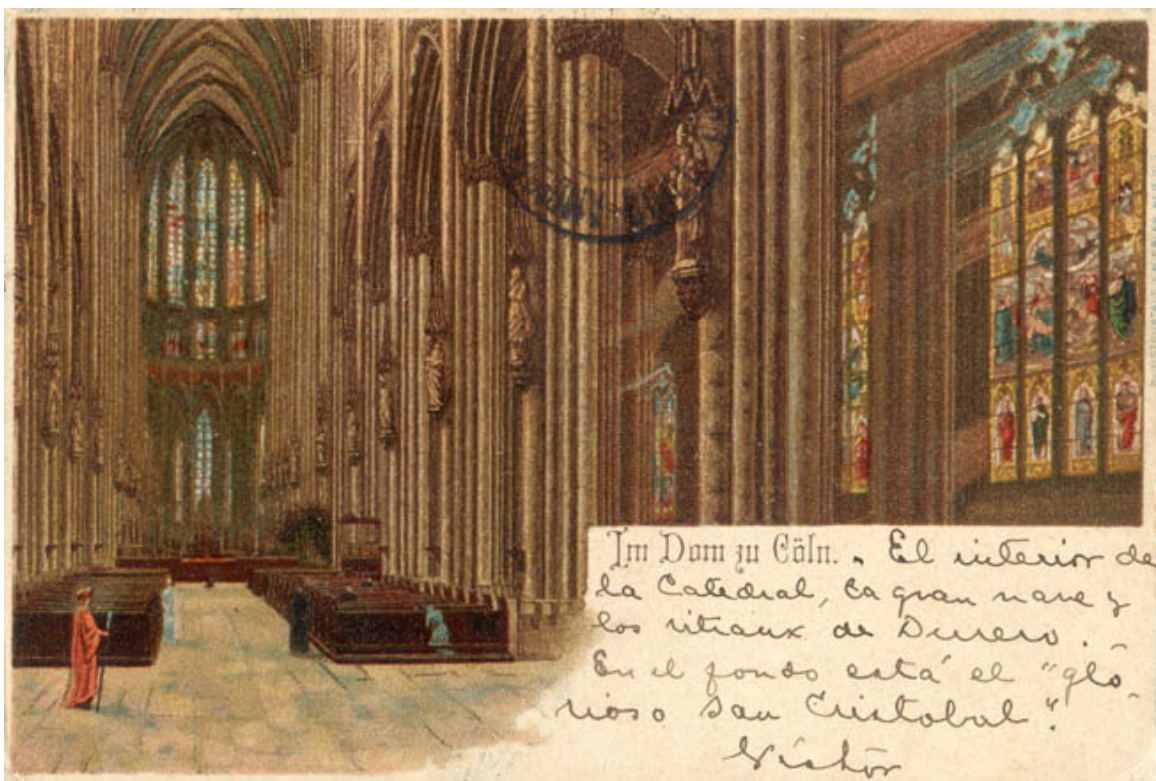 Im Dom zu Cöln. - El interior de
la Catedral, la gran nave y
los vitraux de Durero. -
En el fondo está el "glo-
rioso San Cristobal".
Víctor